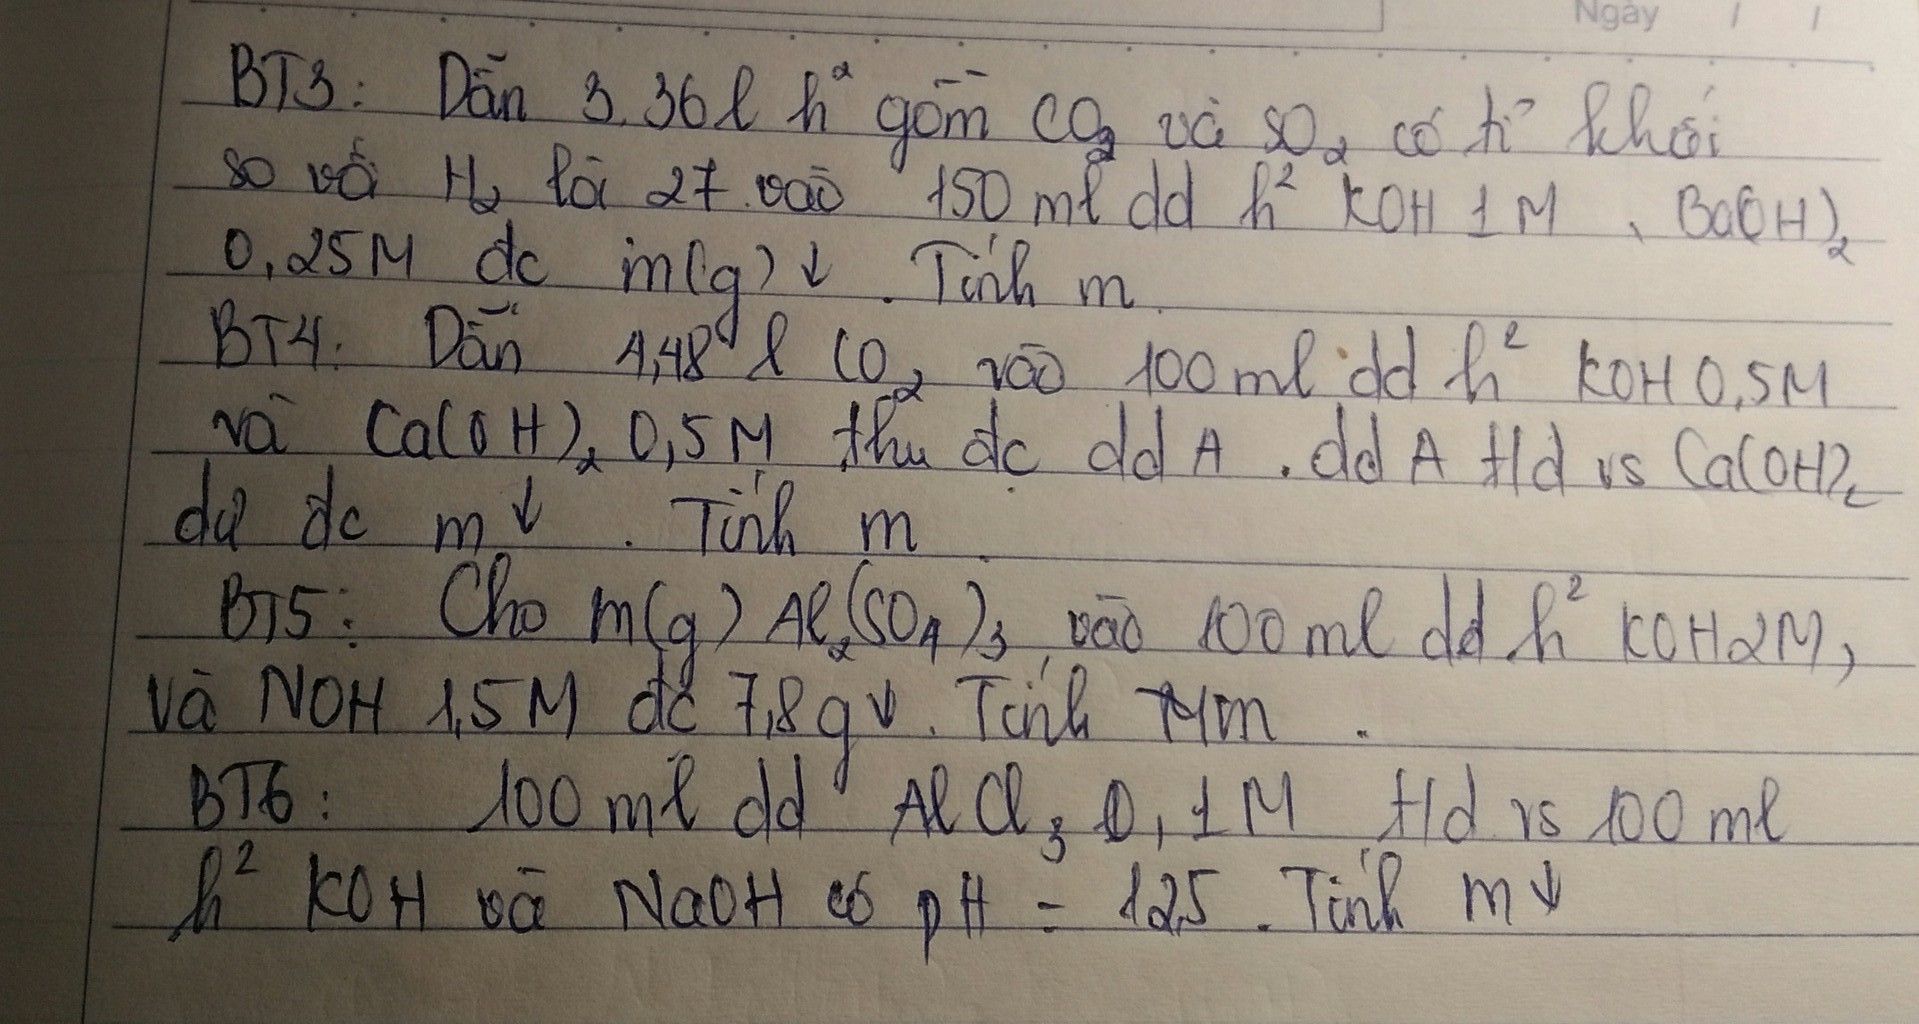 Ngày / /
BT3: Dẫn 3,36l h² gồm CO₂ và SO₂ có tỉ khối
so với H₂ là 27 vào 150ml dd h² KOH 1M, Ba(OH)₂
0,25M đc m(g)↓. Tính m
BT4: Dẫn 4,48 l CO₂ vào 100ml dd h² KOH 0,5M
và Ca(OH)₂ 0,5M thu đc dd A. dd A t/d vs Ca(OH)₂
dư đc m↓. Tính m
BT5: Cho m(g) Al₂(SO₄)₃ vào 100ml dd h² KOH 2M,
và NOH 1,5M đc 7,8g↓. Tính m.
BT6: 100ml dd AlCl₃ 0,1M t/d vs 100ml
h² KOH và NaOH có pH = 12,5. Tính m↓